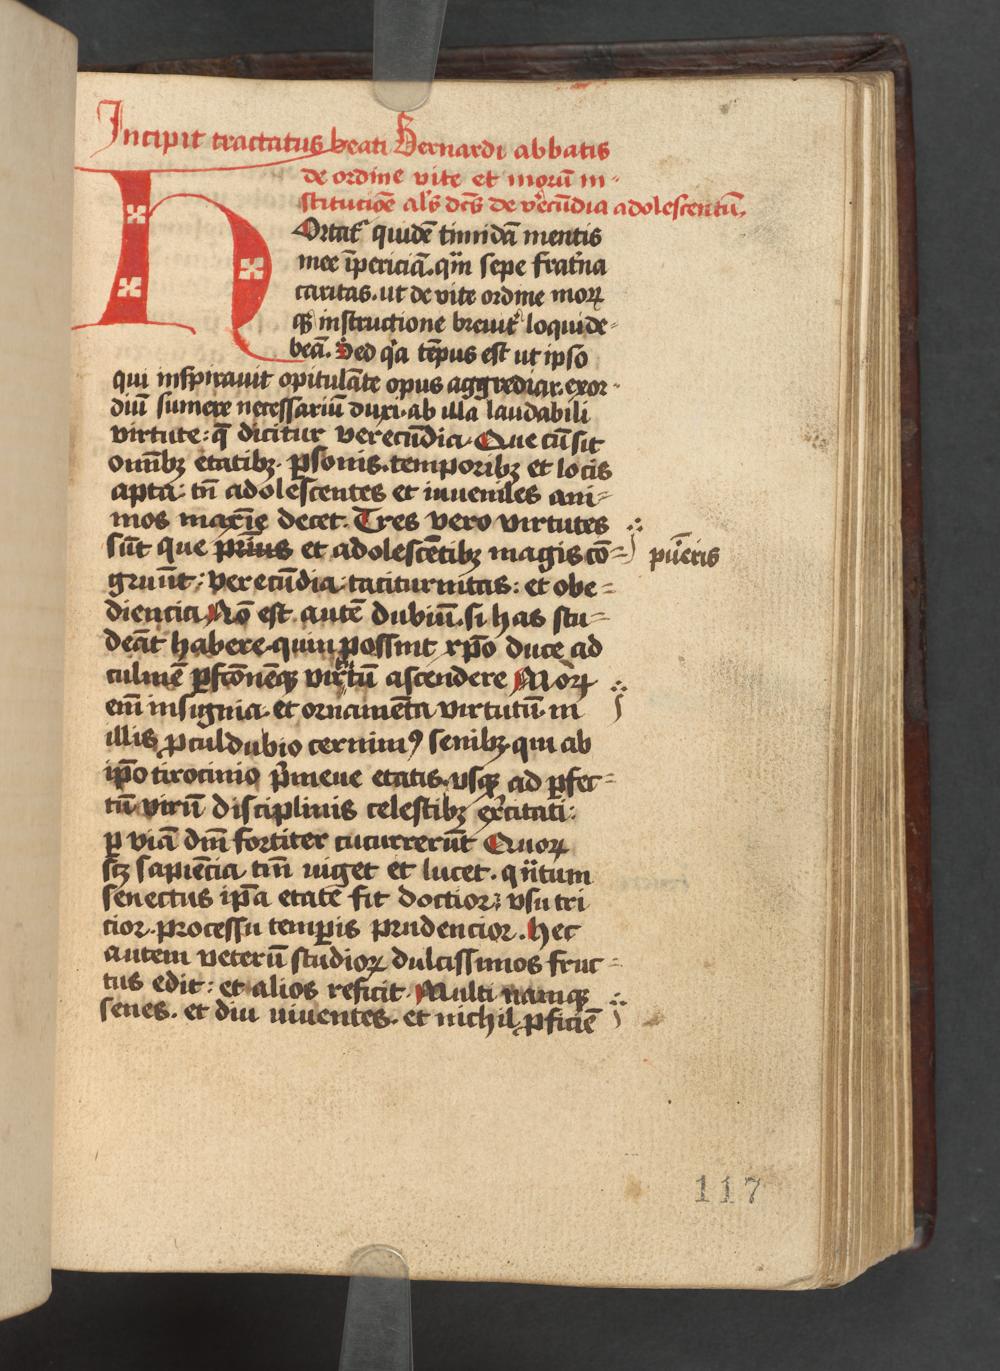 Incipit tractatus beati Bernardi abbatis
de ordine vite et morū in-
stitucioē al's dc̄s de v'ecūdia adolescentū.
HOrtat' quidē timidā mentis
mee īpericiā. qm̄ sepe frat'na
caritas. ut de vite ordine moꝝ
qꝫ instructione breuit' loqui de-
beā. Sed q'a tēpus est ut ipso
qui inspirauit opitulāte opus aggrediar. exor-
diū sumere necessariū duxi. ab illa laudabili
virtute: q̄ dicitur verecūdia. Que cū sit
om̄ibꝫ etatibꝫ. ꝑsonis. temporibꝫ et locis
apta: tn̄ adolescentes et iuueniles ani-
mos maxīe decet. Tres vero virtutes
sūt que prīus et adolescētibꝫ magis cō-
puēris
gruūt: verecūdia: taciturnitas: et obe-
diencia. Nō est autē dubiū. si has stu-
deāt habere. quin possint xp̄o duce ad
culmē ꝑfcōnēqꝫ virtutū ascendere Moꝝ
em̄ insignia. et ornamēta virtutū. in
illis ꝓculdubio cernimꝰ senibꝫ. qui ab
ip̄o tirocinio p̄meue etatis. vsqꝫ ad ꝑfec-
tū virū disciplinis celestibꝫ ex'citati:
ꝑ viā dn̄i fortiter cucurrerūt Quoꝝ
sꝫ sapiēcia tm̄ uiget et lucet. q̄ntum
senectus ip̄a etate fit doctior: vsu tri
cior. processu temꝑis prudencior. Hec
autem veterū studioꝝ dulcissimos fruc-
tus edit: et alios reficit. Multi namqꝫ
senes. et diu uiuentes. et nichil ꝓficiē
117